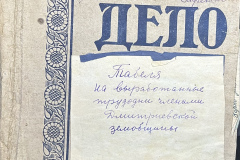 ДЕЛО
Табеля
на выработанные
трудодни членами
Дмитриевской